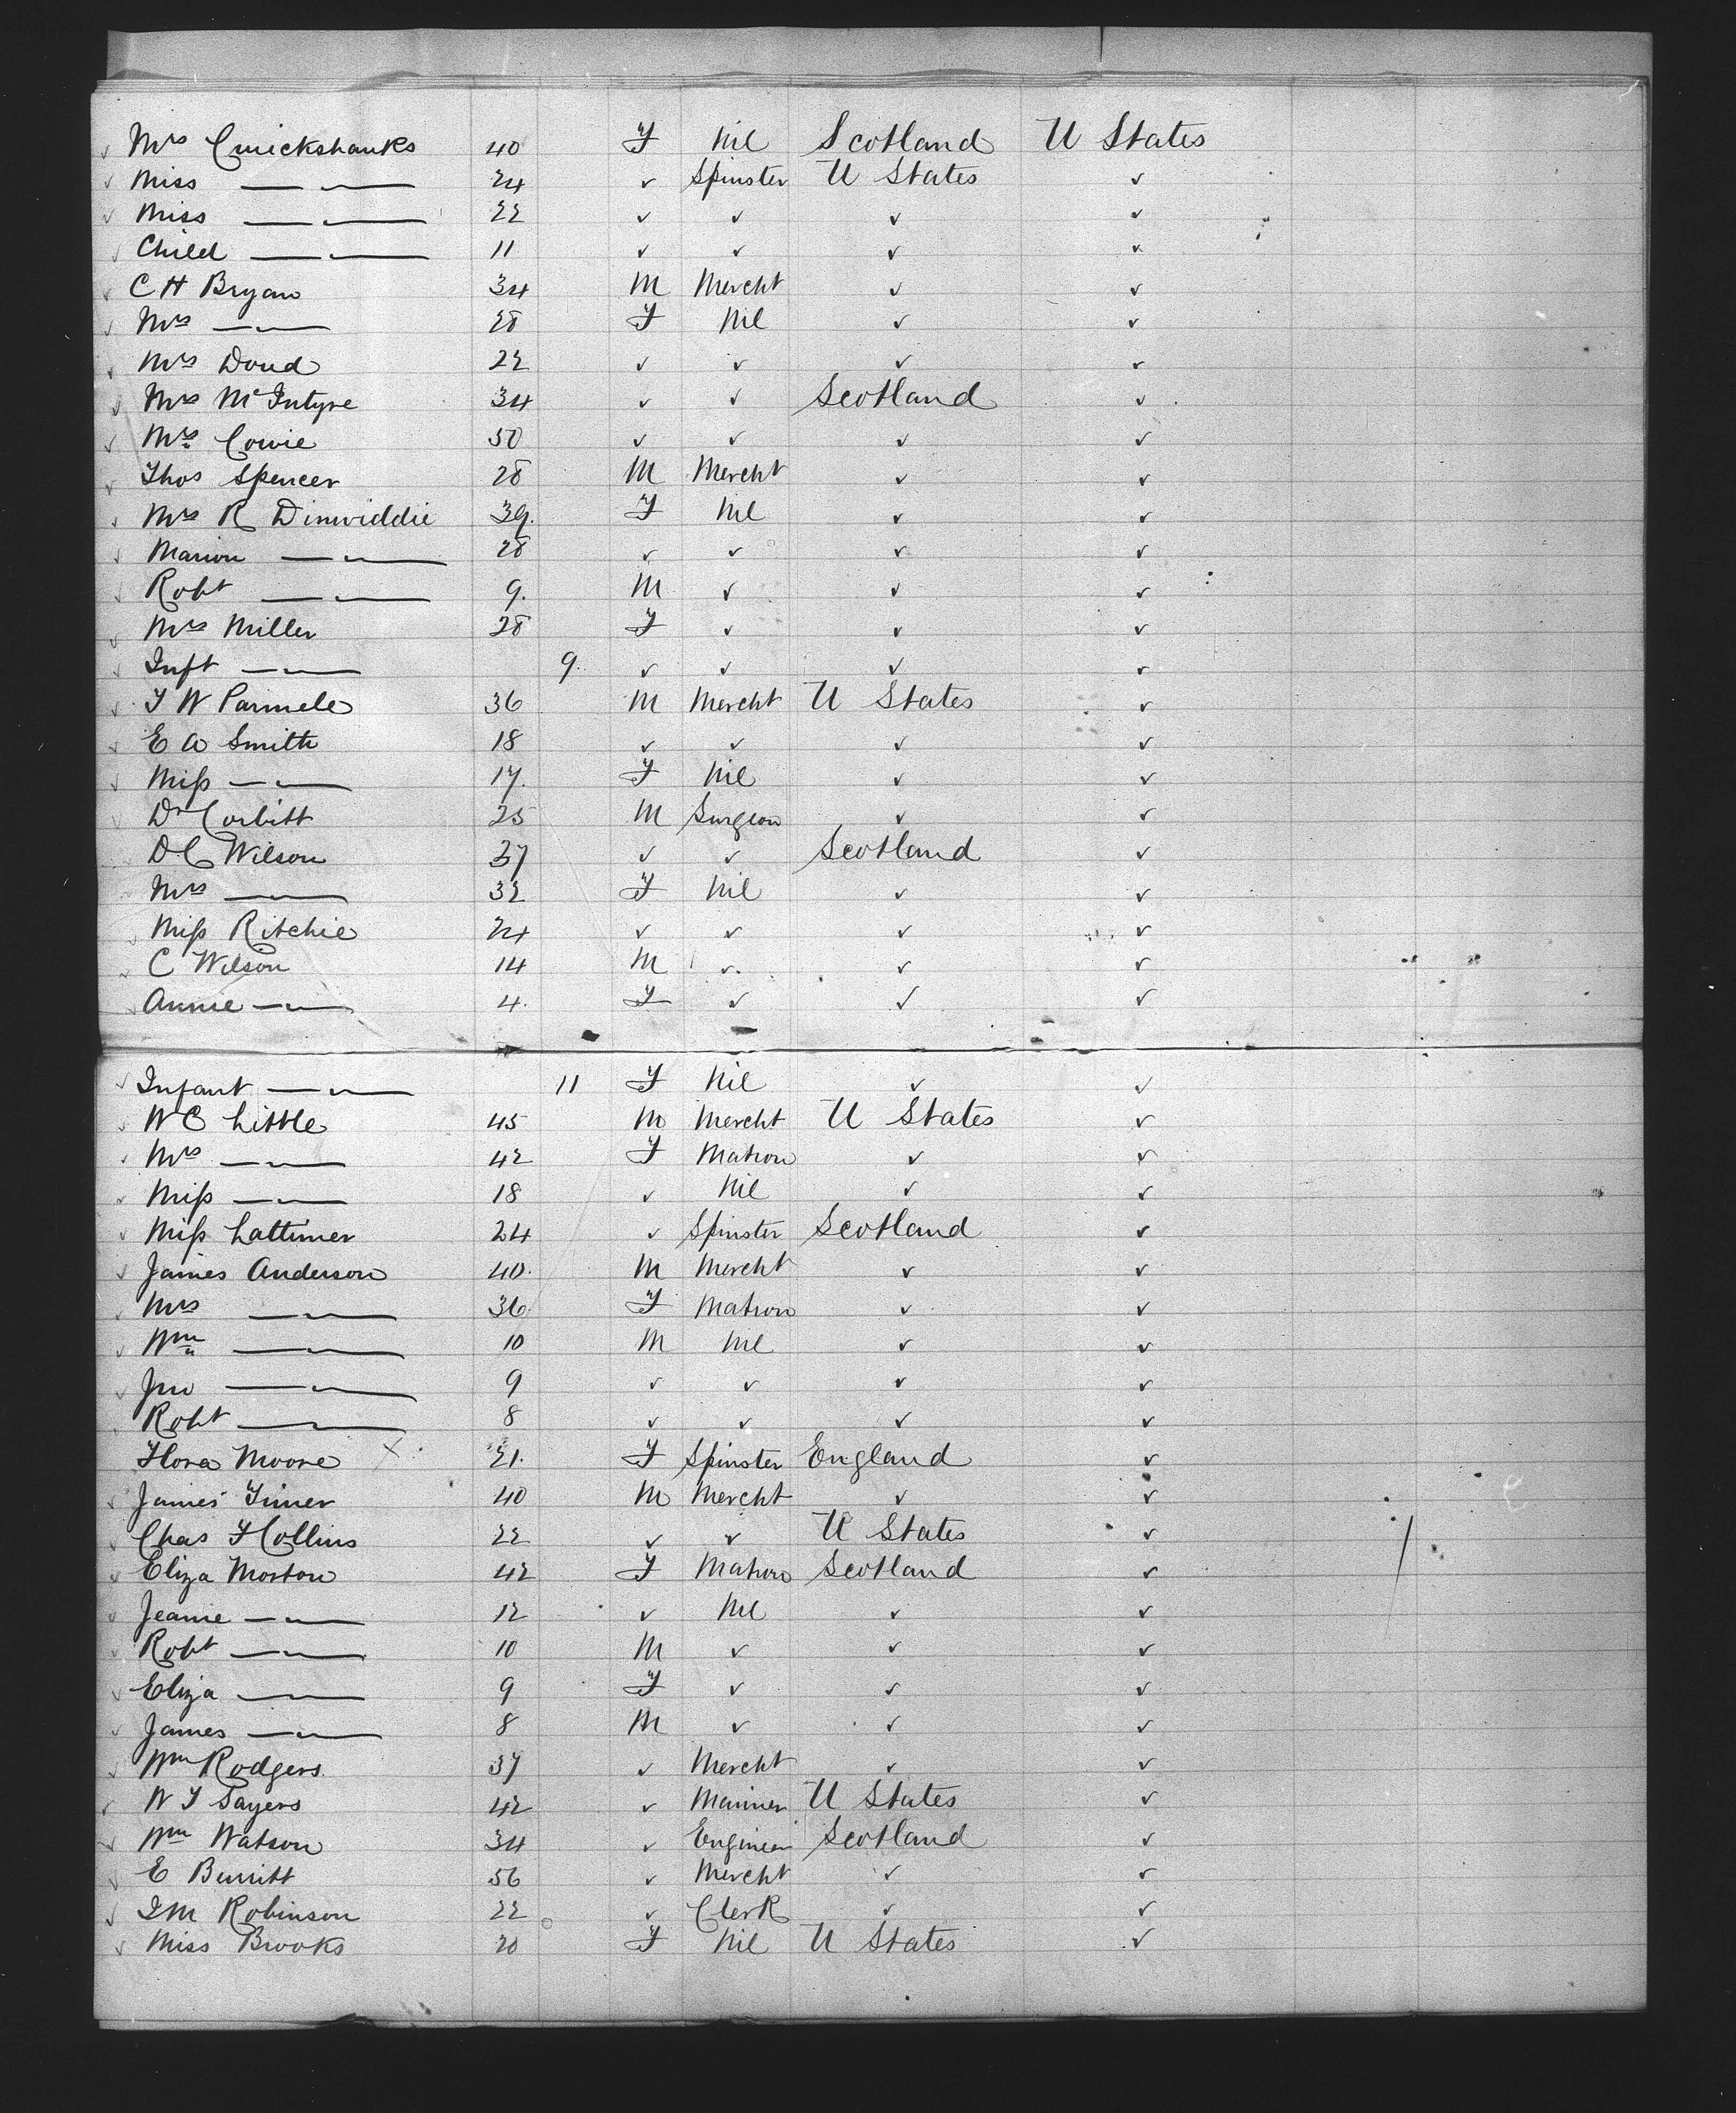 Mrs Cruickshanks 40 F Nil Scotland U States
Miss —〃— 24 ✓ Spinster U States ✓
Miss —〃— 22 ✓ ✓ ✓ ✓
Child —〃— 11 ✓ ✓ ✓ ✓
C H Bryan 34 M Mercht ✓ ✓
Mrs —〃— 28 F Nil ✓ ✓
Mrs Doud 22 ✓ ✓ ✓ ✓
Mrs McIntyre 34 ✓ ✓ Scotland ✓
Mrs Cowie 50 ✓ ✓ ✓ ✓
Thos Spencer 28 M Mercht ✓ ✓
Mrs R Dinwiddie 39 F Nil ✓ ✓
Marion —〃— 28 ✓ ✓ ✓ ✓
Robt —〃— 9 M ✓ ✓ ✓
Mrs Miller 28 F ✓ ✓ ✓
Inft —〃— 9 ✓ ✓ ✓ ✓
T W Parmele 36 M Mercht U States ✓
E A Smith 18 ✓ ✓ ✓ ✓
Miss —〃— 17 F Nil ✓ ✓
Dr Corbitt 25 M Surgeon ✓ ✓
D C Wilson 37 ✓ ✓ Scotland ✓
Mrs —〃— 32 F Nil ✓ ✓
Miss Ritchie 24 ✓ ✓ ✓ ✓
C Wilson 14 M ✓ ✓ ✓
Annie —〃— 4 F ✓ ✓ ✓
Infant —〃— 11 F Nil ✓ ✓
W C Little 45 M Mercht U States ✓
Mrs —〃— 42 F Matron ✓ ✓
Miss —〃— 18 ✓ Nil ✓ ✓
Miss Lattimer 24 ✓ Spinster Scotland ✓
James Anderson 40 M Mercht ✓ ✓
Mrs —〃— 36 F Matron ✓ ✓
Wm —〃— 10 M Nil ✓ ✓
Jno —〃— 9 ✓ ✓ ✓ ✓
Robt —〃— 8 ✓ ✓ ✓ ✓
Flora Moore X 21 F Spinster England ✓
James 40 M Mercht ✓ ✓
Chas F Collins 22 ✓ ✓ U States ✓
Eliza Morton 42 F Matron Scotland ✓
Jeanie —〃— 12 ✓ Nil ✓ ✓
Robt —〃— 10 M ✓ ✓ ✓
Eliza —〃— 9 F ✓ ✓ ✓
James —〃— 8 M ✓ ✓ ✓
Wm Rodgers 37 ✓ Mercht ✓ ✓
W F Sayers 42 ✓ Mariner U States ✓
Wm Watson 34 ✓ Engineer Scotland ✓
E Burritt 56 ✓ Mercht ✓ ✓
J M Robinson 22 ✓ Clerk ✓ ✓
Miss Brooks 20 F Nil U States ✓